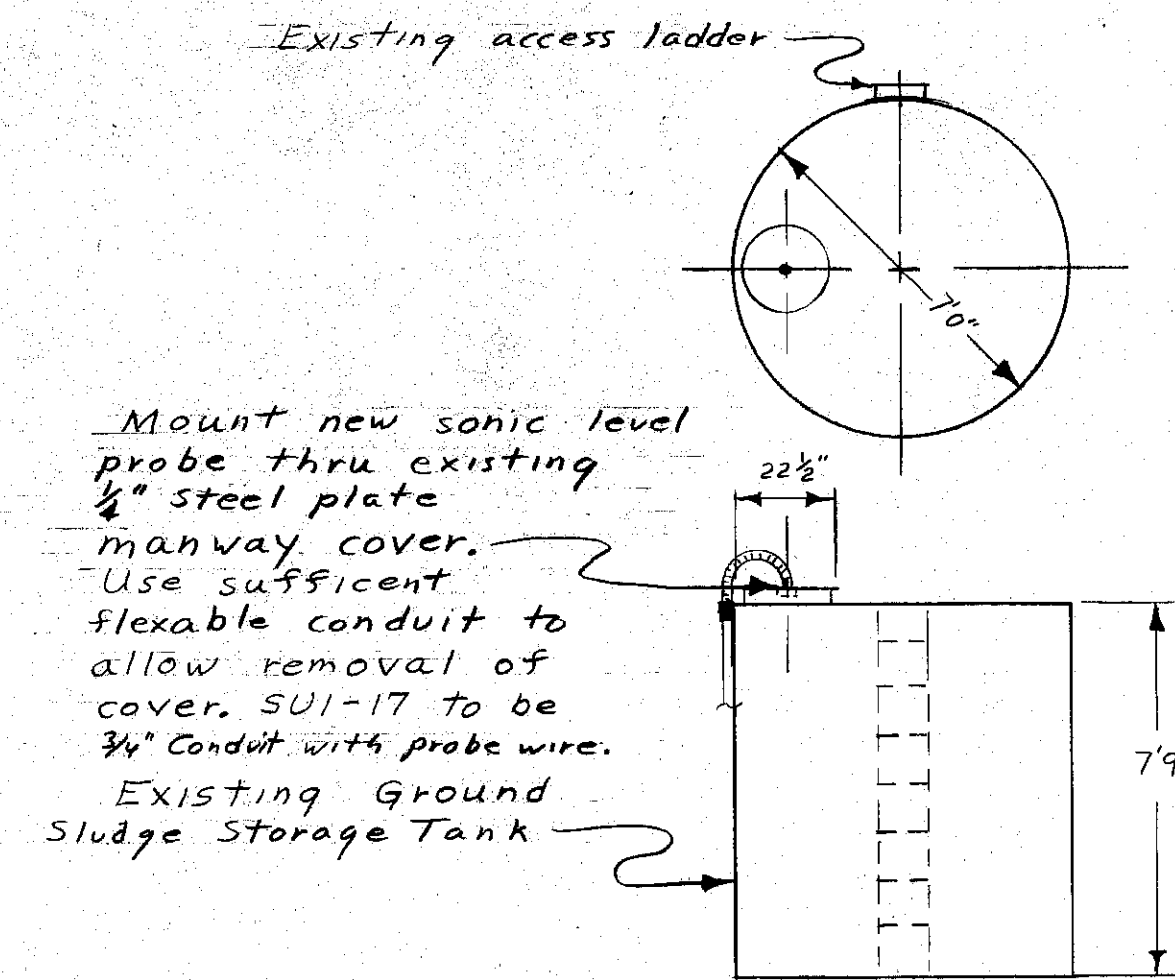 Existing access ladder
7'0"
Mount new sonic level
probe thru existing
1/4" steel plate
manway cover.
Use sufficent
flexable conduit to
allow removal of
cover. SU1-17 to be
3/4" Conduit with probe wire.
22 1/2"
Existing Ground
Sludge Storage Tank
7'9